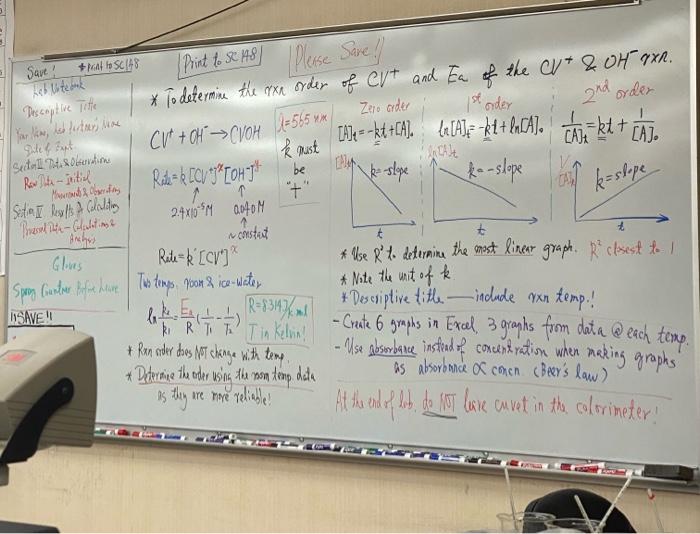 Save!
* Print to SC148
Lab Notebook
Descriptive Title
Your Name, Lab Partner's Name
Date of Expt.
Section II Data & Observations
Raw Data - Initial
Measurements & Observations
Section IV Results & Calculations
Processed Data - Calculations &
Analysis
Gloves
Spray Counter Before Leave
SAVE!!
Print to SC 148
Please Save!!
* To determine the rxn order of CV+ and Ea of the CV+ & OH- rxn.
CV+ + OH- → CVOH
λ=565 nm
Rate = k [CV+]^x [OH-]^y
2.4x10^-5 M
0.040 M
~ constant
Rate = k' [CV+]^x
k must
be
"+"
Two temps, room & ice-water
ln k2/k1 = Ea/R (1/T1 - 1/T2)
R=8.314 J/K·mol
T in Kelvin!
* Rxn order does NOT change with temp.
* Determine the order using the room temp. data
as they are more reliable!
Zero order
[A]t = -kt + [A]o
[A]t
k = -slope
t
1st order
ln[A]t = -kt + ln[A]o
ln[A]t
k = -slope
t
2nd order
1/[A]t = kt + 1/[A]o
1/[A]t
k = slope
t
* Use R² to determine the most linear graph. R² closest to 1
* Note the unit of k
* Descriptive title — include rxn temp.!
- Create 6 graphs in Excel, 3 graphs from data @ each temp.
- Use absorbance instead of concentration when making graphs
as absorbance ∝ concn. (Beer's law)
At the end of lab, do NOT leave cuvet in the colorimeter!